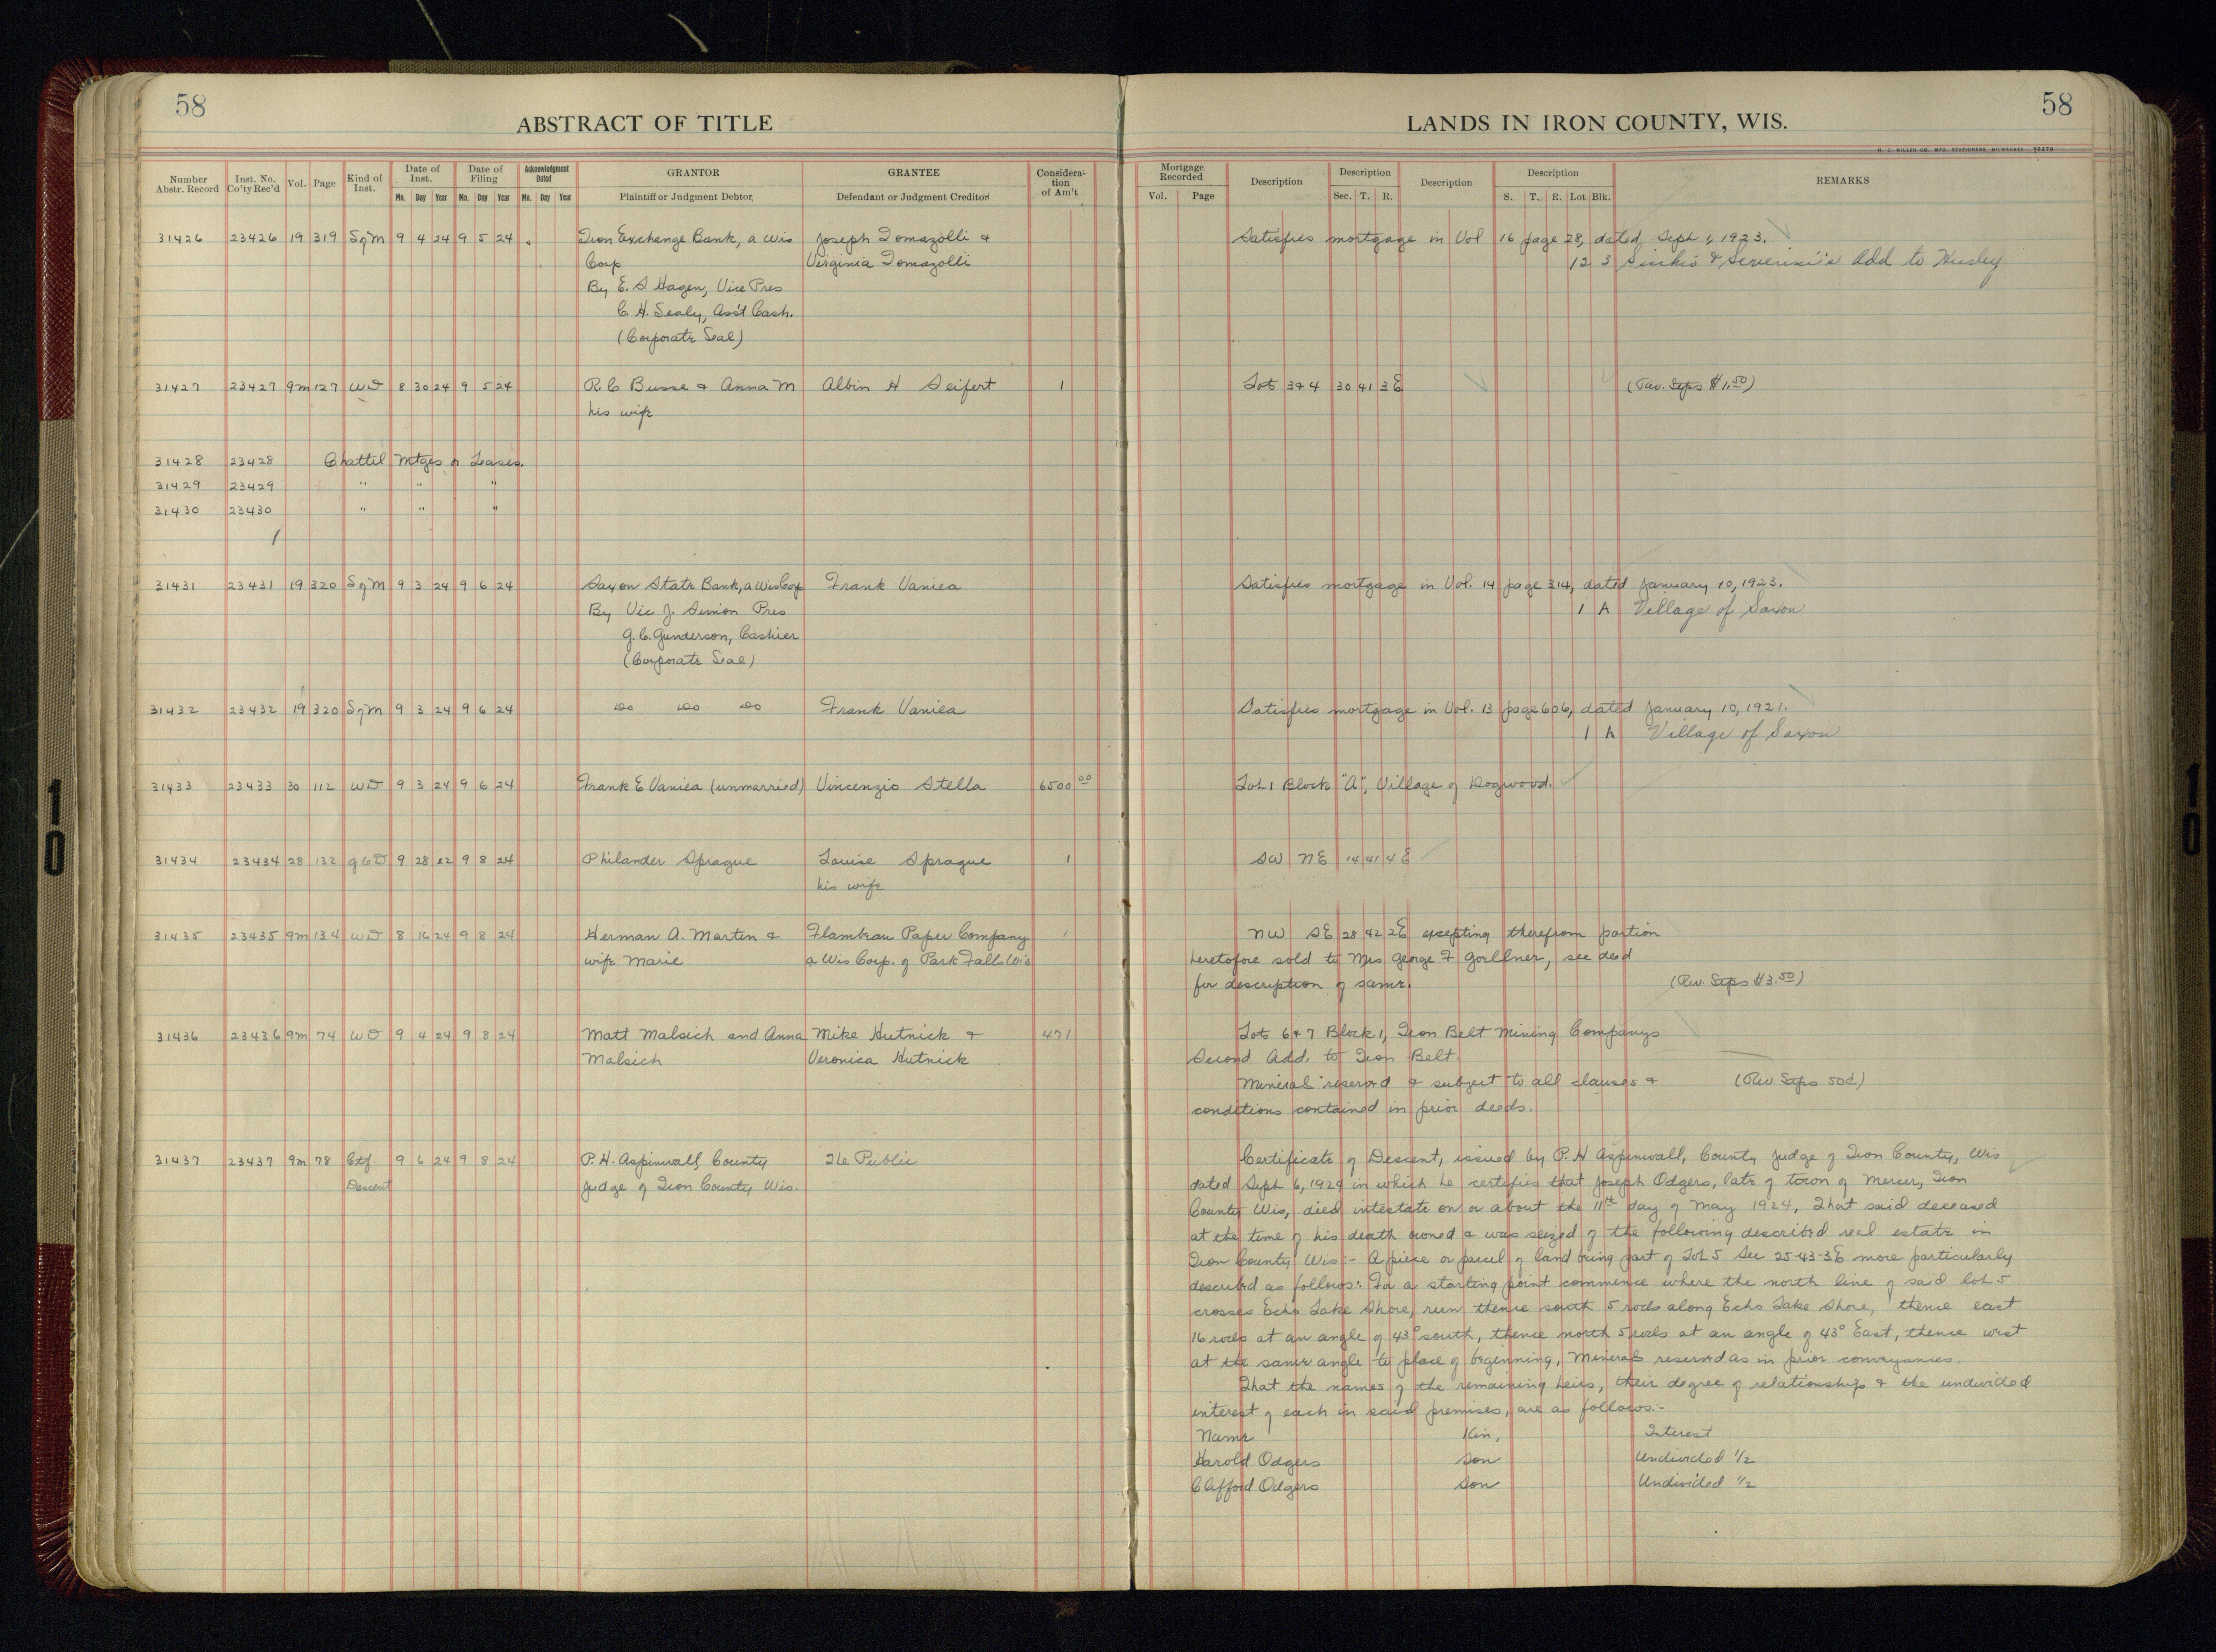 58
ABSTRACT OF TITLE
Number Abstr. Record
Inst. No. Co'ty Rec'd
Vol.
Page
Kind of Inst.
Date of Inst.
Mo. Day Year
Date of Filing
Mo. Day Year
Acknowledgment Dated
Mo. Day Year
GRANTOR
Plaintiff or Judgment Debtor
GRANTEE
Defendant or Judgment Creditor
Considera-tion of Am't
31426 23426 19 319 SqM 9 4 24 9 5 24 Iron Exchange Bank, a Wis Joseph Tomazolli &
Corp Virginia Tomazolli
By E. S Hagen, Vice Pres
C. H. Sealy, Ass't Cash.
(Corporate Seal)
31427 23427 9m 127 WD 8 30 24 9 5 24 R. C Busse & Anna M Albin H Seifert 1
his wife
31428 23428 Chattel Mtges or Leases.
31429 23429 " " "
31430 23430 " " "
31431 23431 19 320 SqM 9 3 24 9 6 24 Saxon State Bank, a Wis Corp Frank Vaniea
By Vic J. Simon Pres
G. C. Gunderson, Cashier
(Corporate Seal)
31432 23432 19 320 SqM 9 3 24 9 6 24 Do Do Do Frank Vaniea
31433 23433 30 112 WD 9 3 24 9 6 24 Frank E Vaniea (unmarried) Vincenzio Stella 6500 00
31434 23434 28 132 QCD 9 28 22 9 8 24 Philander Sprague Louise Sprague 1
his wife
31435 23435 9m 134 WD 8 16 24 9 8 24 Herman A. Martin & Flambeau Paper Company 1
wife Marie a Wis Corp. of Park Falls Wis
31436 23436 9m 74 WD 9 4 24 9 8 24 Matt Malsich and Anna Mike Hutnick & 471
Malsich Veronica Hutnick
31437 23437 9m 78 Ctf. 9 6 24 9 8 24 P. H. Aspinwall, County The Public
Descent Judge of Iron County, Wis.
58
LANDS IN IRON COUNTY, WIS.
M. C. MILLER CO., MFG. STATIONERS, MILWAUKEE
Mortgage Recorded
Vol. Page
Description
Description
Sec. T. R.
Description
Description
S. T. R. Lot Blk.
REMARKS
Satisfies mortgage in Vol 16 page 28, dated Sept 1, 1923.
12 3 Add to Hurley
Lots 3&4 30 41 3E (Rev. Stps $1.50)
Satisfies mortgage in Vol. 14 page 314, dated January 10, 1923.
1 A Village of Saxon
Satisfies mortgage in Vol. 13 page 606, dated January 10, 1921.
1 A Village of Saxon
Lot 1 Block "A", Village of Dogwood.
SW NE 14 41 4E
NW SE 28 42 2E excepting therefrom portion
heretofore sold to Mrs George F Goellner, see deed
for description of same. (Rev. Stps $3.50)
Lots 6 & 7 Block 1, Iron Belt Mining Companys
Second Add. to Iron Belt.
Mineral reserved & subject to all clauses & (Rev Stps 50¢)
conditions contained in prior deeds.
Certificate of Descent, issued by P. H Aspinwall, County Judge of Iron County, Wis
dated Sept 6, 1924 in which he certifies that Joseph Odgers, late of town of Mercer, Iron
County Wis, died intestate on or about the 11th day of May 1924, That said deceased
at the time of his death owned & was seized of the following described real estate in
Iron County Wis:- A piece or parcel of land being part of Lot 5 Sec 25-43-3E more particularly
described as follows: For a starting point commence where the north line of said lot 5
crosses Echo Lake Shore, run thence south 5 rods along Echo Lake Shore, thence east
16 rods at an angle of 43° south, thence north 5 rods at an angle of 43° East, thence west
at the same angle to place of beginning, Minerals reserved as in prior conveyances.
That the names of the remaining heirs, their degree of relationship & the undivided
interest of each in said premises, are as follows:-
Name Kin, Interest
Harold Odgers Son Undivided 1/2
Clifford Odgers Son Undivided 1/2
10
10